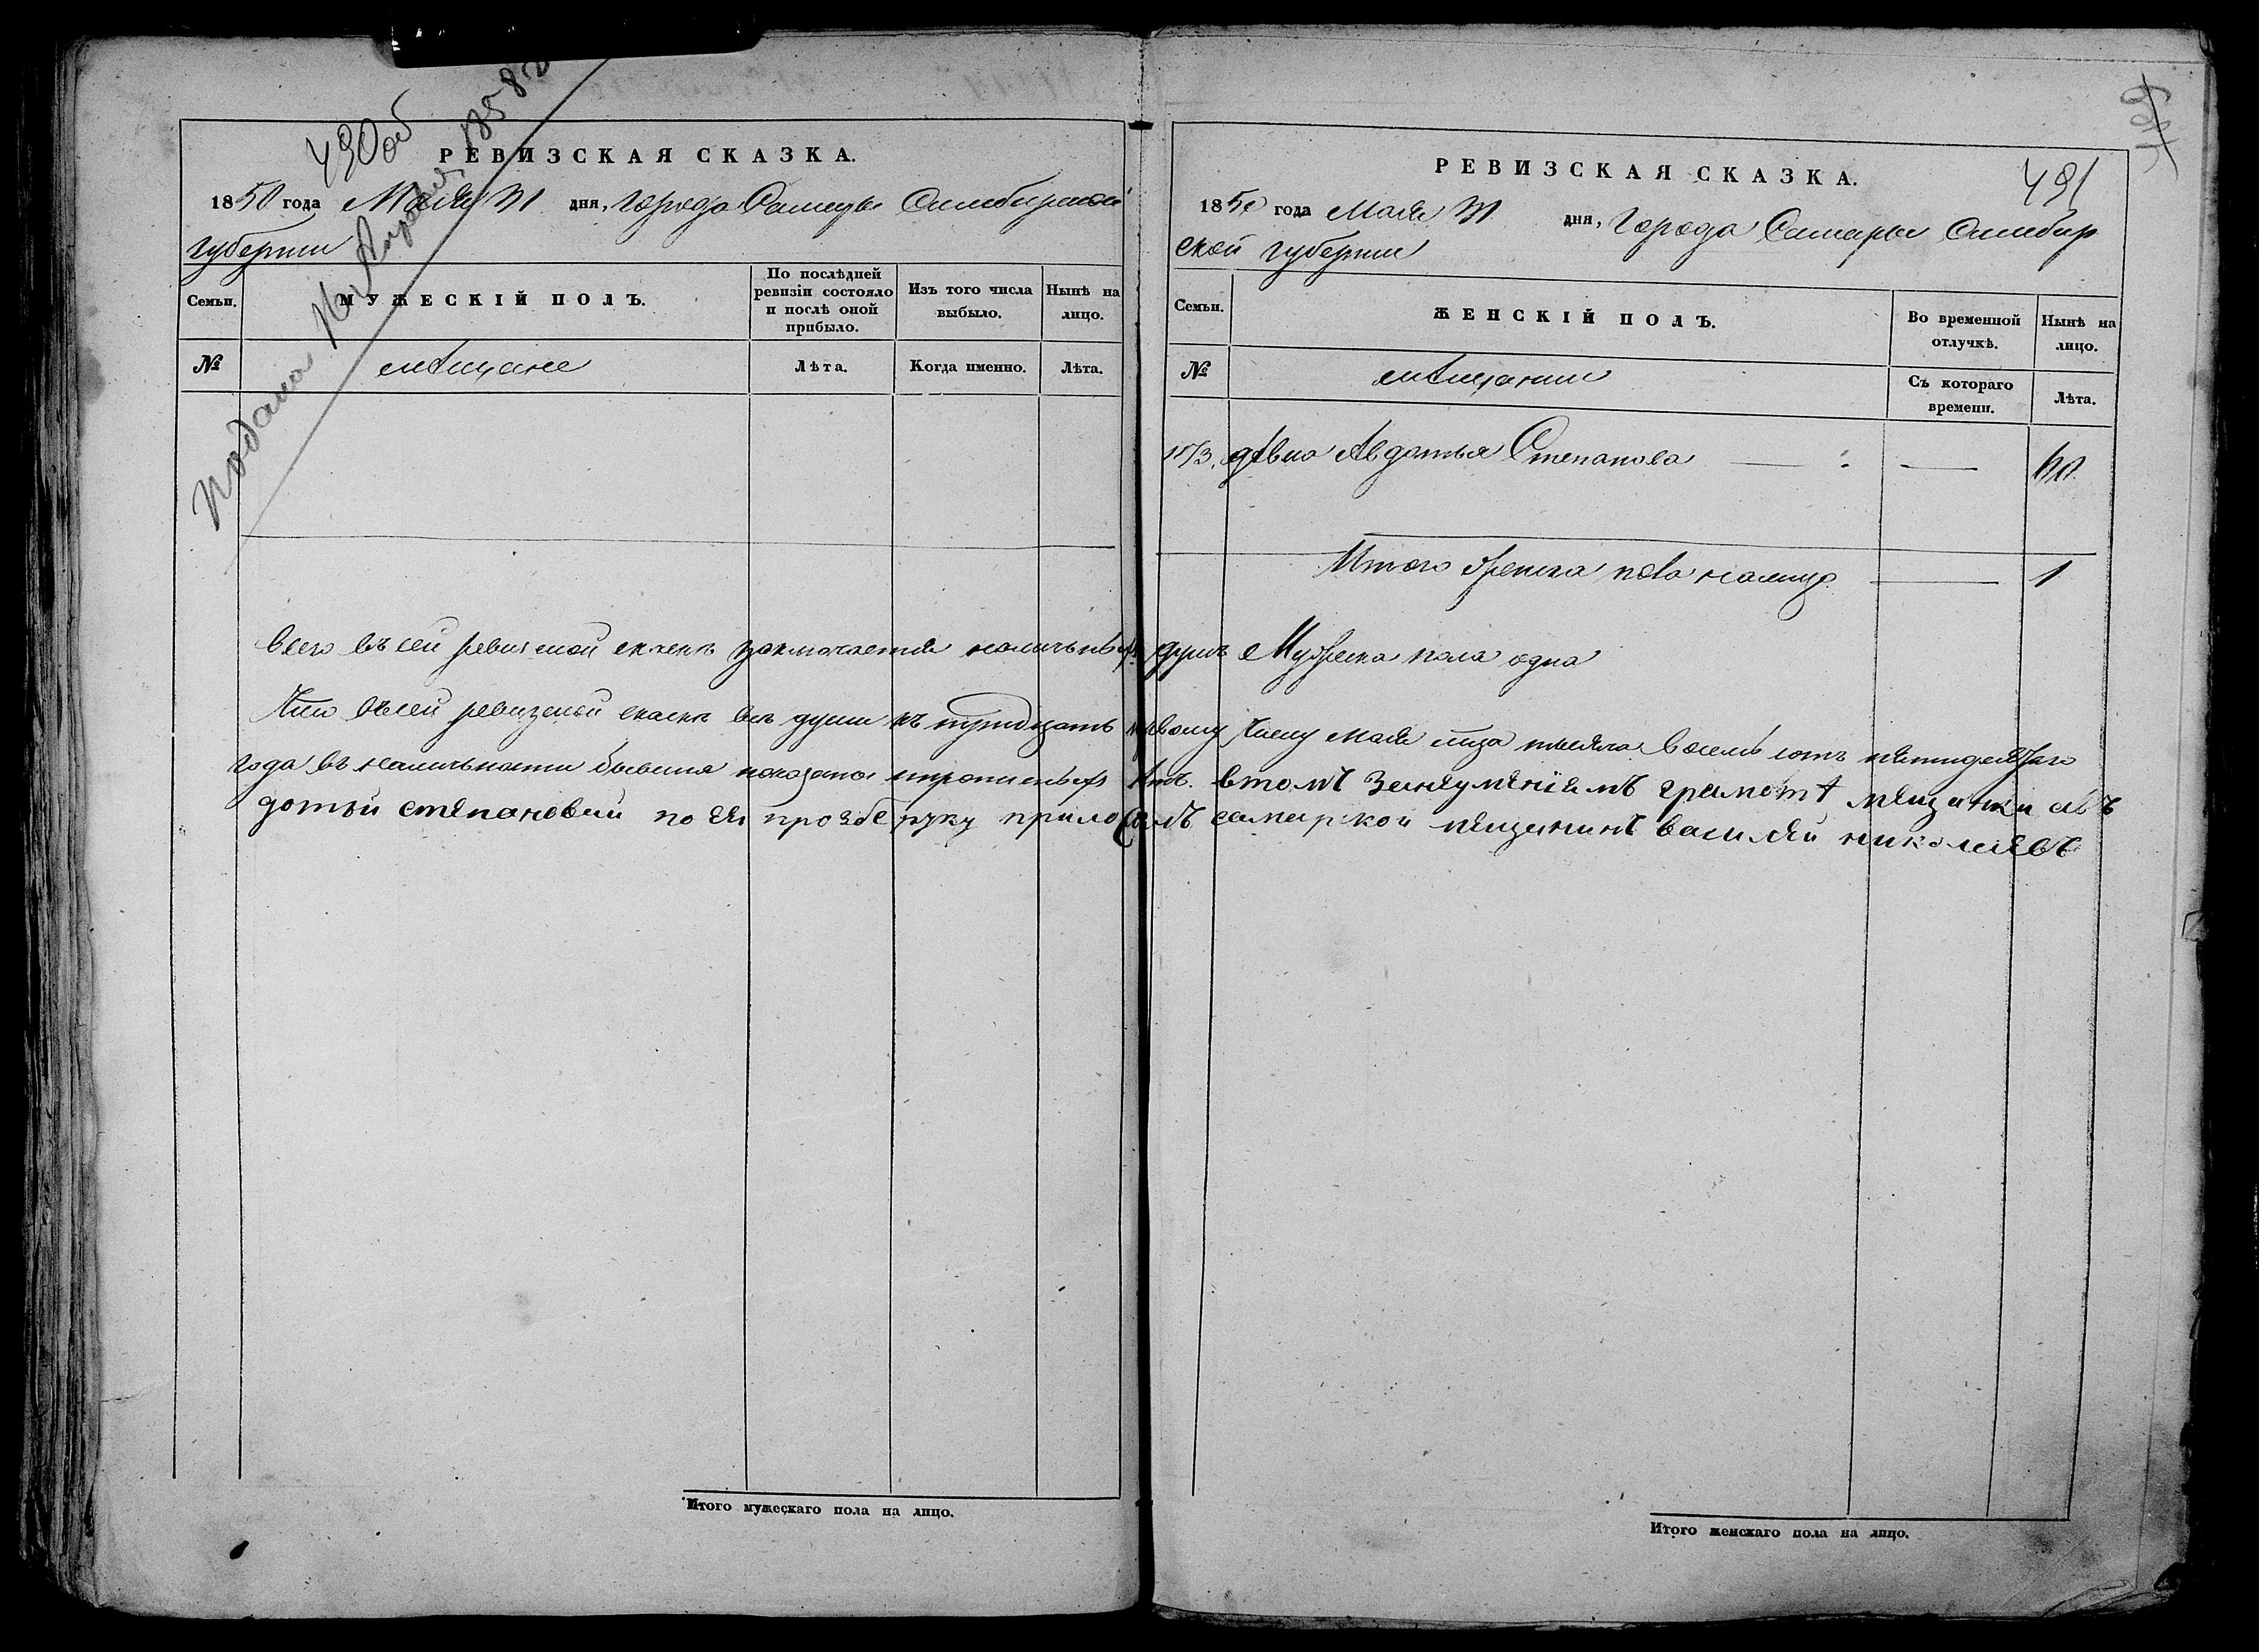 490 об
Подана 14 Апреля 1858 г
РЕВИЗСКАЯ СКАЗКА.
1850 года Маія 31 дня, города Самары Симбирской
губерніи
Семьи.
МУЖЕСКІЙ ПОЛЪ.
По послѣдней
ревизіи состояло
и послѣ оной
прибыло.
Изъ того числа
выбыло.
Нынѣ на
лицо.
№
мѣщане
Лѣта.
Когда именно.
Лѣта.
491
РЕВИЗСКАЯ СКАЗКА.
1850 года Маія 31 дня, города Самары Симбир
ской губерніи
Семьи.
ЖЕНСКІЙ ПОЛЪ.
Во временной
отлучкѣ.
Нынѣ на
лицо.
№
мѣщанки
Съ котораго
времени.
Лѣта.
дѣвка Авдотья Степанова
Итого женска пола налицо 1
всего въ сей ревизской сказке заключается наличныхъ душъ Мужеска пола одна
Что всей ревизской сказке все души къ тридцать первому числу маія м͠ца тысяча восемь сотъ пятидесятаго
года въ наличности бывшия показаны и прописныхъ нѣтъ. втомъ занеумѣніямъ грамотѣ мещанки ав
дотьи степановой по ея прозбе руку приложилъ самарской мещанинъ василяй николаявъ
Итого мужескаго пола на лицо.
Итого женскаго пола на лицо.